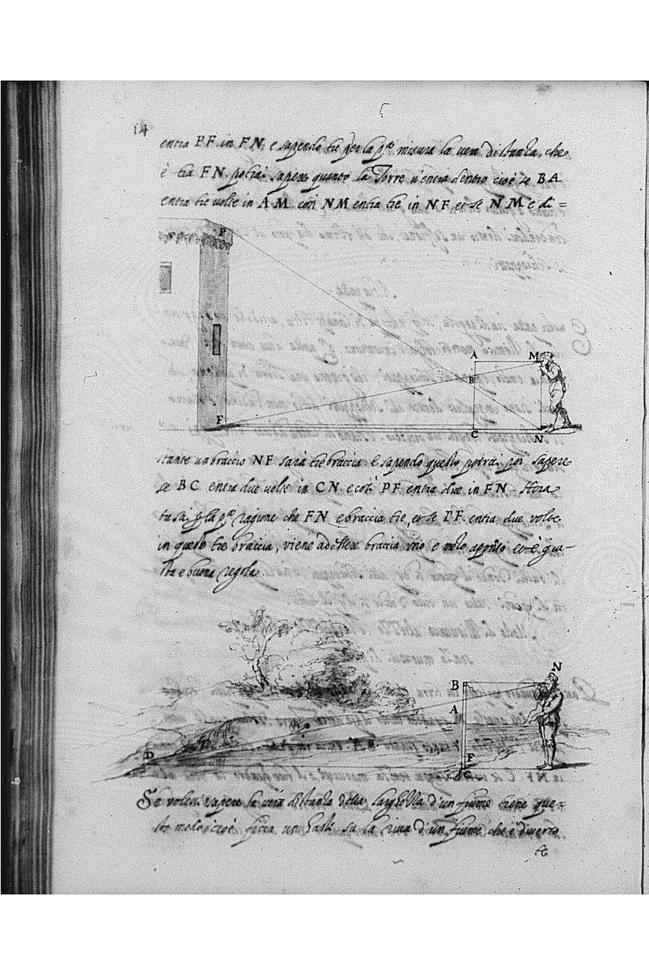 14
entra P F in F N, e sapendo tu per la p.ª misura la vera distanza, che
è tra F N potrai sapere quanto la Torre v'entra dentro cioè se B A
entra tre volte in A M così N M entra tre in N F, et se N M è di =
P
A
M
B
F
C
N
stante un braccio N F sarà tre braccia e sapendo questo potrai poi sapere
se B C entra due volte in C N e così P F entra due in F N
tu sai p la p.ª ragione che F N è braccia tre, et se P F entra due volte
in queste tre braccia, viene ad essere braccia uno e mezo apputo et è giu-
sta e buona regola.
N
B
A
D
F
C
Se volessi sapere la vera distanza della larghezza d'un fiume tiene que-
sto modo cioè ficca un su la riva d'un fiume che